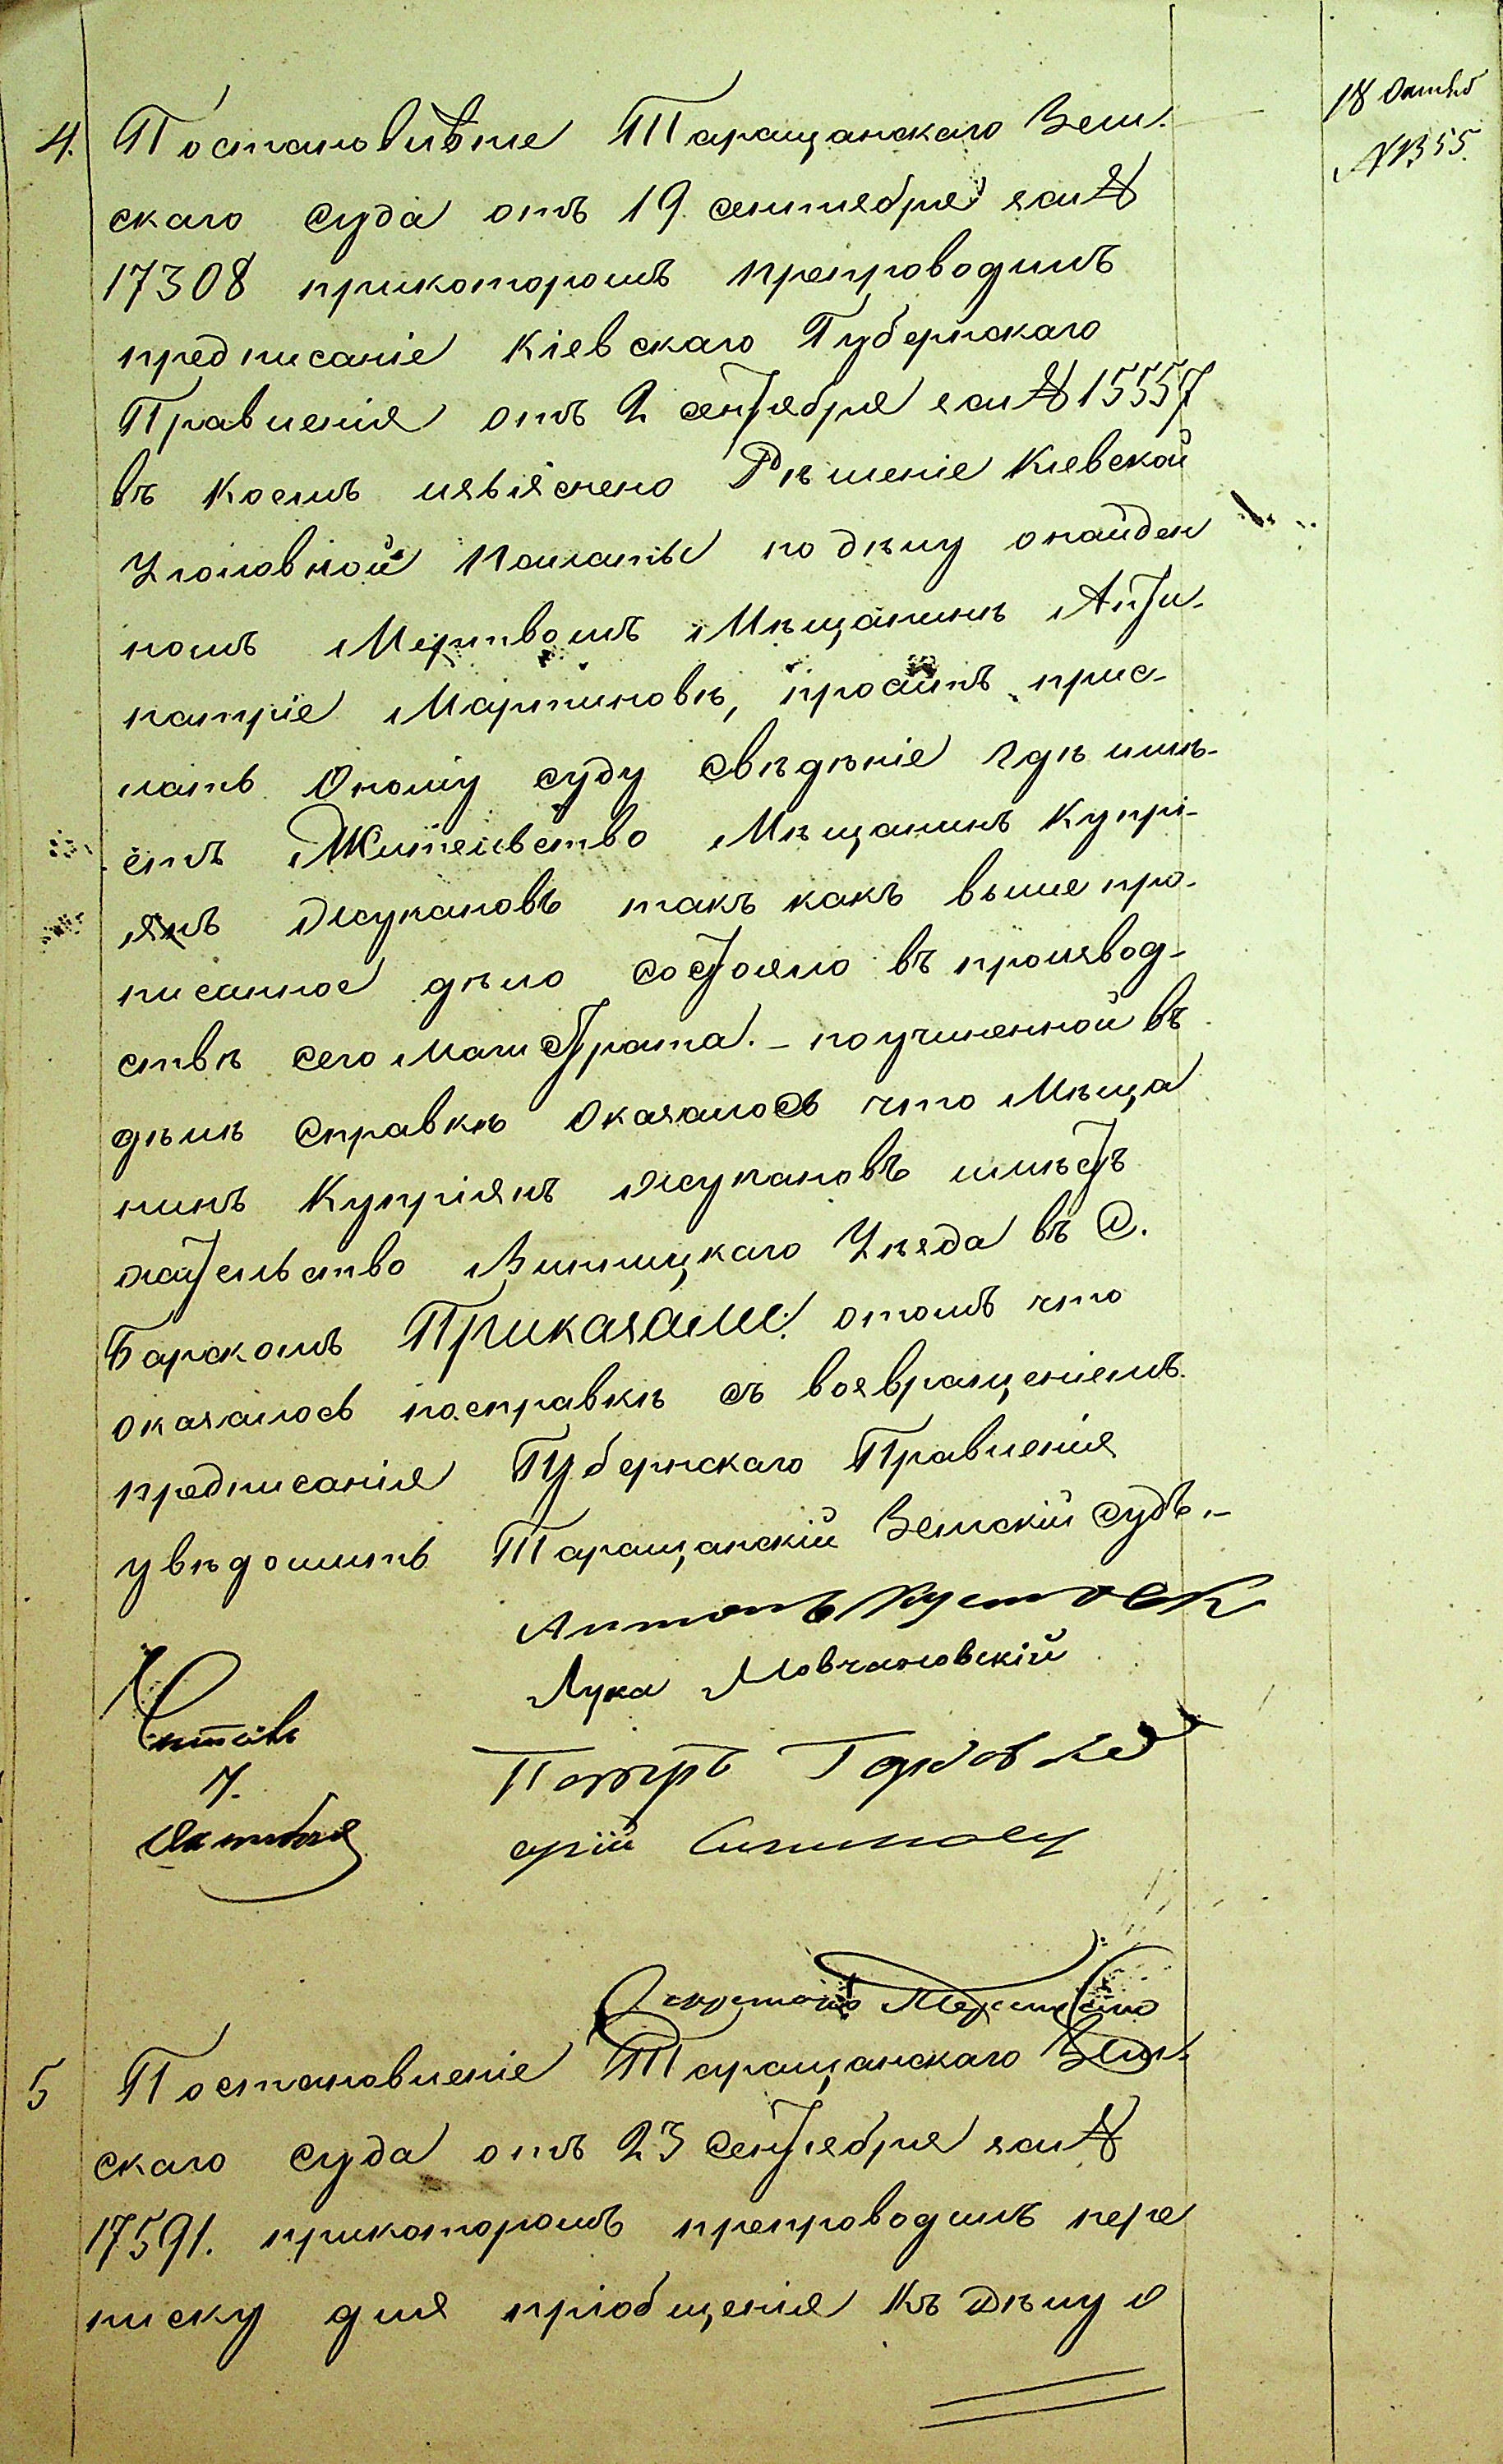 18 Октяб
№ 1355.
4. Постановленіе Таращанскаго Зем-
скаго суда отъ 19 сентября за №
17308 прикоторомъ препроводилъ
предписаніе Кіевскаго Губернскаго
Правленія отъ 2 сентября за № 15557
въ коемъ изъяснено Рѣшеніе Кіевской
Уголовной Палаты по дѣлу онайден
номъ Мертвомъ Мѣщанинѣ Анти-
патріе Мартиновѣ, проситъ прис-
лать Оному суду свѣдѣніе гдѣ имѣ-
етъ Жительство Мѣщанинъ Купрі-
янъ Жупановъ такъ какъ выше про-
писанное дѣло состояло въ производ-
ствѣ сего Магистрата. – поучиненной въ
дѣлѣ справкѣ Оказалось что Мѣща
нинъ Купріянъ Жупановъ имѣетъ
жательство Винницкаго Уѣзда въ С.
Барскомъ Приказали: отомъ что
оказалось посправкѣ съ возвращеніемъ
предписанія Губернскаго Правленія
увѣдомить Таращанскій Земскій судъ. –
Антонъ
Лука Мовчановскій
Читалъ
7.
Октября
Петръ
Секретарь
5 Постановленіе Таращанскаго Зем-
скаго суда отъ 23 сентября за №
17591. прикоторомъ препроводилъ пере
писку для пріобщенія Къ Дѣлу о